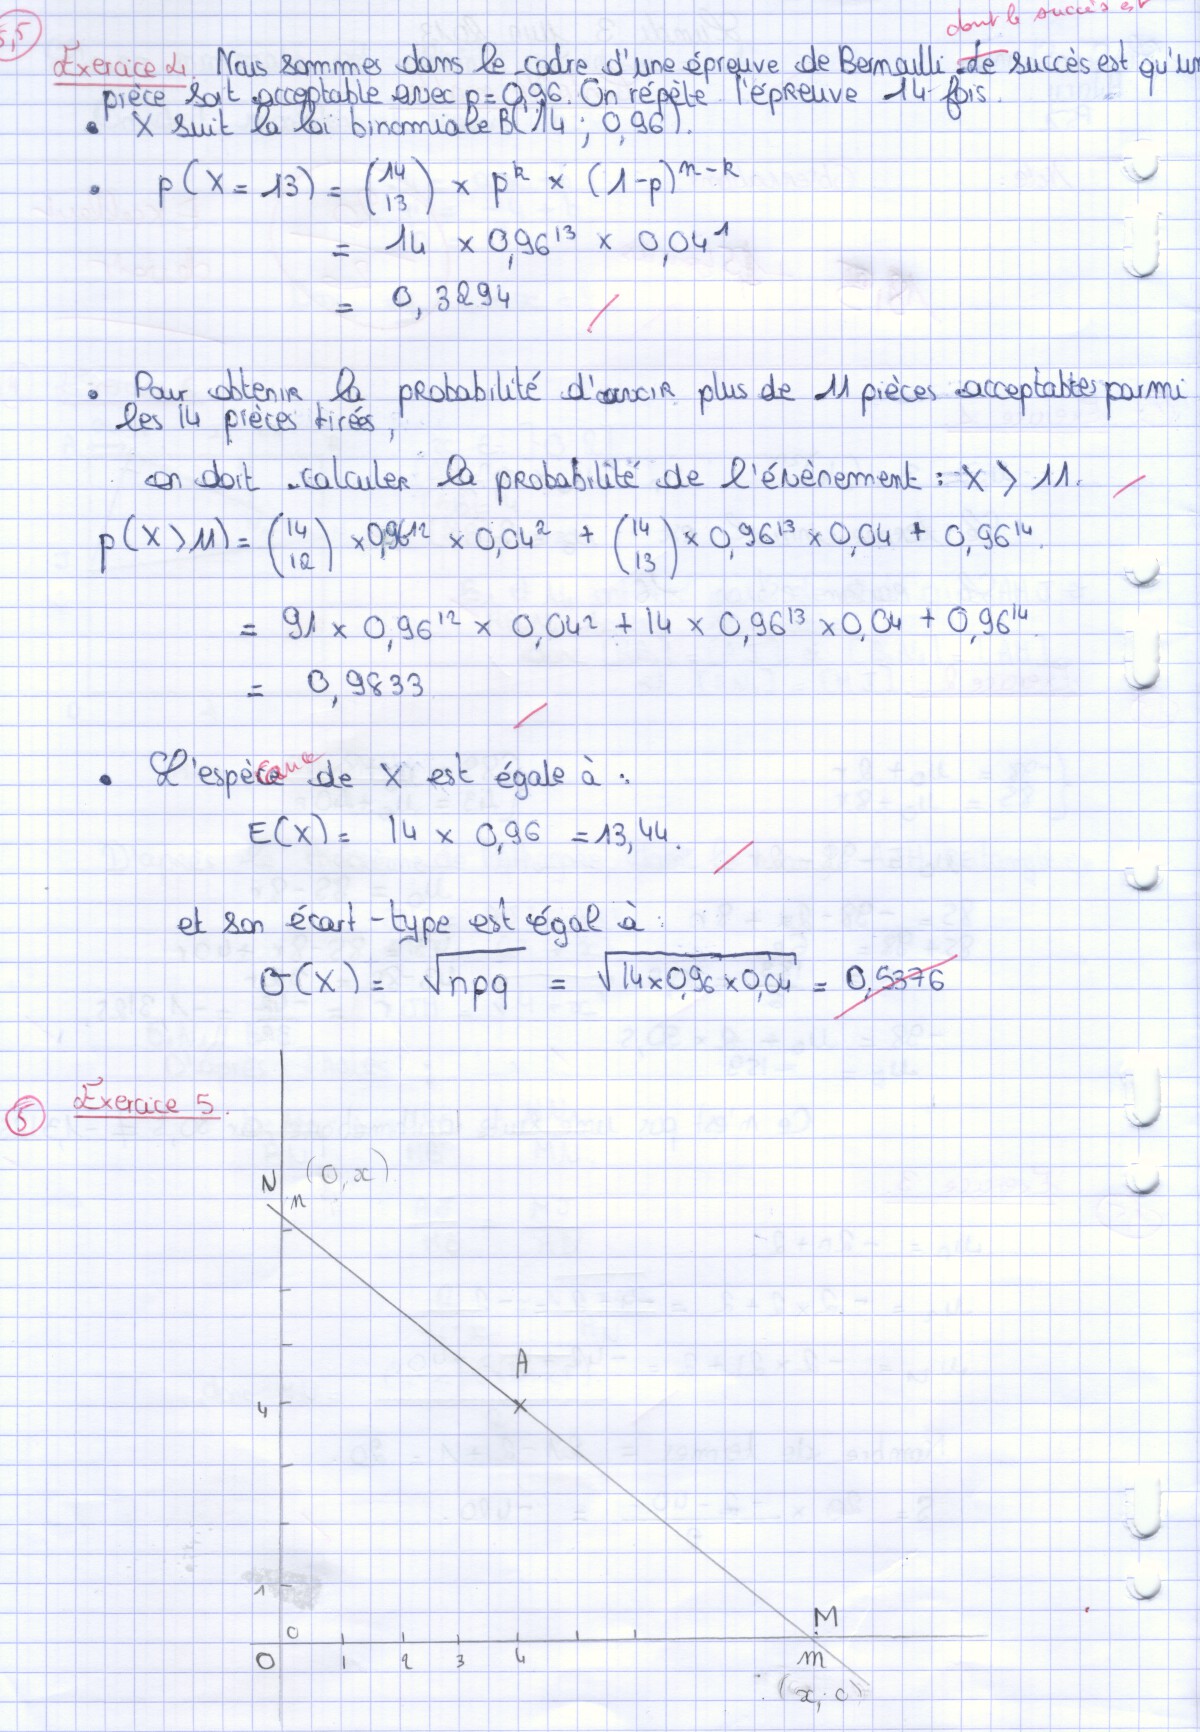 5,5
dont le succès est
Exercice 4. Nous sommes dans le cadre d'une épreuve de Bernoulli de succès est qu'un
pièce soit acceptable avec p = 0,96. On répète l'épreuve 14 fois.
• X suit la loi binomiale B(14 ; 0,96).
• p(X = 13) = (14 13) × p^k × (1-p)^n-k
= 14 × 0,96^13 × 0,04^1
= 0,3294
• Pour obtenir la probabilité d'avoir plus de 11 pièces acceptables parmi
les 14 pièces tirées,
on doit calculer la probabilité de l'évènement : X > 11.
p(X > 11) = (14 12) × 0,96^12 × 0,04^2 + (14 13) × 0,96^13 × 0,04 + 0,96^14.
= 91 × 0,96^12 × 0,04^2 + 14 × 0,96^13 × 0,04 + 0,96^14.
= 0,9833
• L'espérance de X est égale à :
E(X) = 14 × 0,96 = 13,44.
et son écart-type est égal à :
σ(X) = √npq = √14×0,96×0,04 = 0,5376
5 Exercice 5.
N (0, x)
n
A
4
1
0 M
O 1 2 3 4 m
(x, 0)